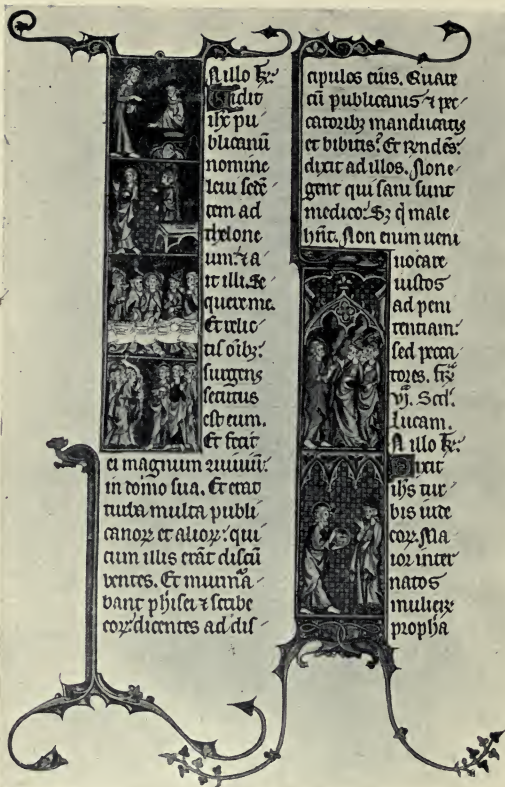 N illo t̄r.
Uidit
ihc pu
blicanū
nomine
leui sedē
tem ad
thelone
um: ⁊ a
it illi. Se
quere me.
Et relic
tis oībꝫ:
surgens
secutus
est eum.
Et fecit
ei magnum ꝯuiuiū:
in domo sua. Et erat
turba multa publi
canoꝝ et alioꝝ: qui
cum illis erāt discū
bentes. Et murmᷓa
bant pħisei ⁊ scribe
eoꝝ dicentes ad dis
cipulos eius. Quare
cū publicanis ⁊ pec
catoribꝫ manducatis
et bibitis? Et rendēs:
dixit ad illos. Non e
gent qui sani sunt
medico: Sꝫ q̄ male
hn̄t. Non enim ueni
uocare
iustos
ad peni
tentiam:
sed pecca
tores. fr̄
vj. Scd̄.
lucam.
N illo t̄r.
Dixit
ihs tur
bis iude
oꝝ. Ma
ior inter
natos
mulieꝝ
propha